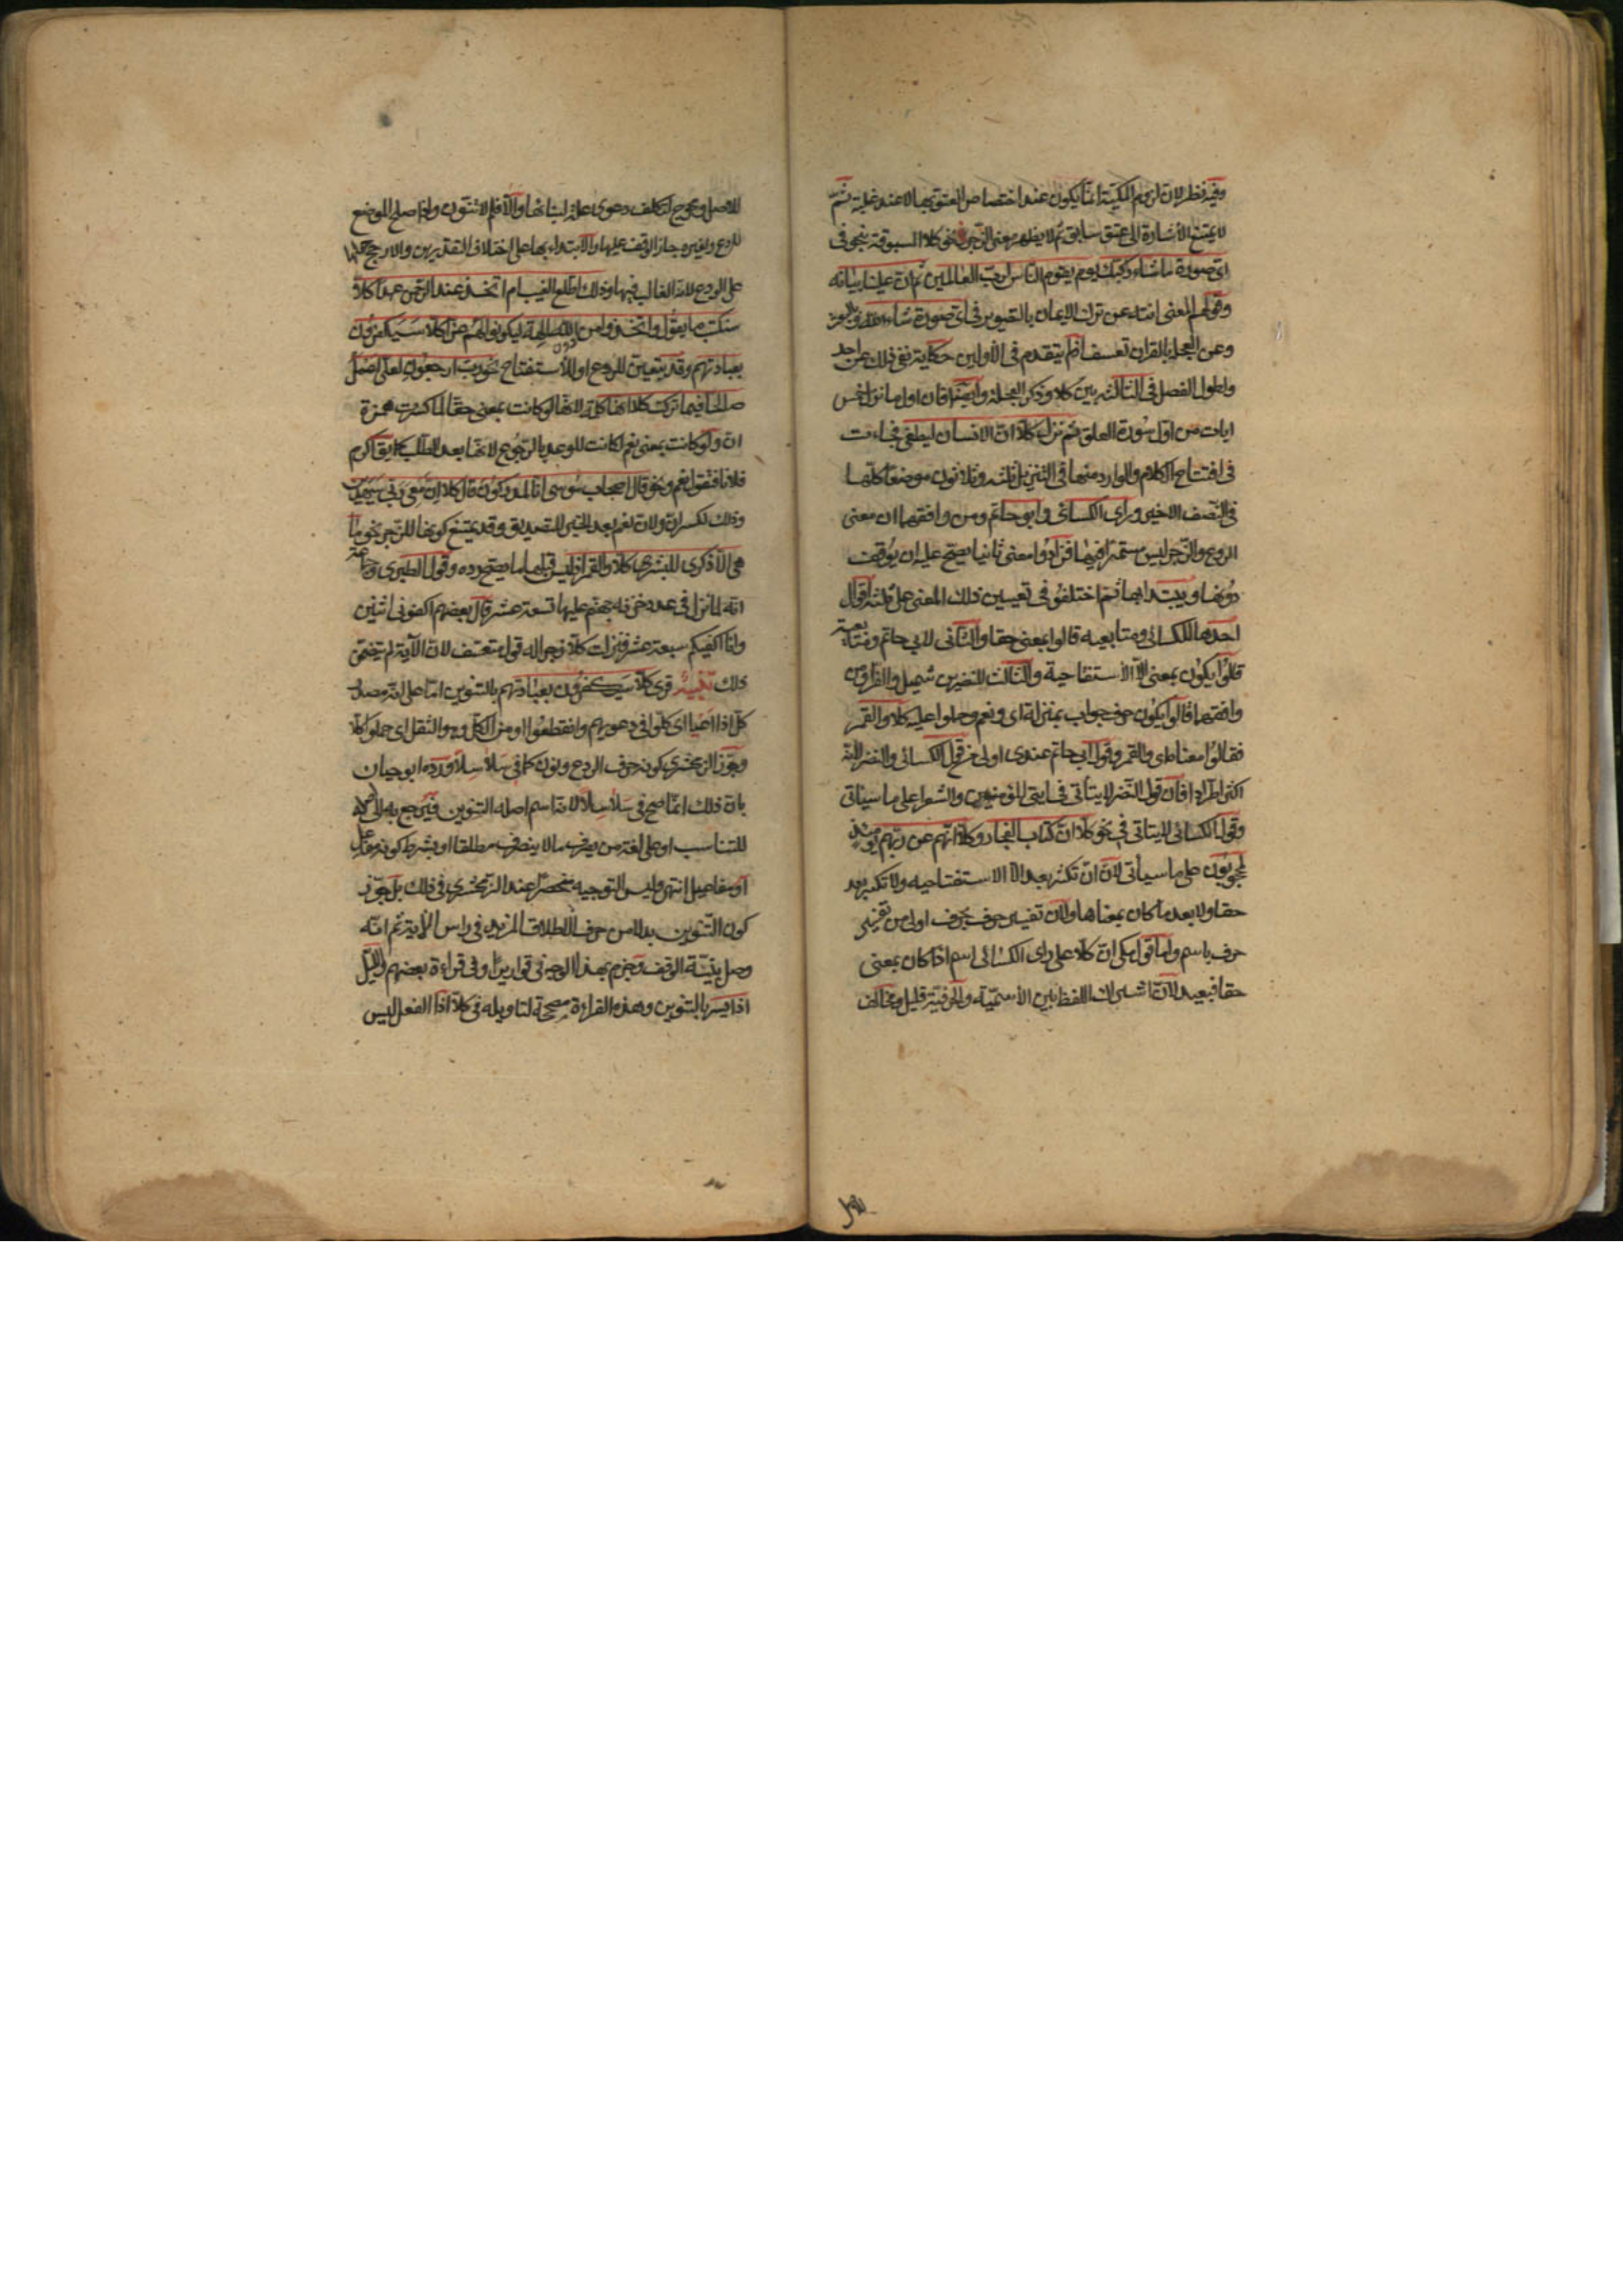 وفيه نظر لان لزوم المكية انما يكون عند اختصاص العتو بها لا عند غلبته ثم
لا يمتنع الاشارة الى عتو سابق ثم لا يظهر معنى الزجر في نحو كلا المسبوقة بنحو في
اي صورة ما شاء ركبك يوم يقوم الناس لرب العالمين ثم ان علينا بيانه
وقولهم المعنى انته عن ترك الايمان بالتصوير في اي صورة شاء الله وبالبعث
وعن العجلة بالقران تعسف اذ لم يتقدم في الأولين حكاية نفي ذلك عن احد
ولطول الفصل في الثالثة بين كلا وذكر العجلة وايضا فان اول ما نزل خمس
ايات من اول سورة العلق ثم نزل كلا ان الانسان ليطغى فجاءت
في افتتاح الكلام والوارد منها في التنزيل ثلثة وثلاثون موضعا كلها
في النصف الاخير وراى الكسائى وابو حاتم ومن وافقهما ان معنى
الردع والزجر ليس مستمرا فيها فزادوا معنى ثانيا يصح عليه ان يوقف
دونها ويبتدا بها ثم اختلفوا في تعيين ذلك المعنى على ثلثة اقوال
احدها للكسائى ومتابعيه قالوا بمعنى حقا والثانى لابي حاتم ومتابعيه
قالوا يكون بمعنى الا الاستفتاحية والثالث للنضر بن شميل والفرا ومن
وافقهما قالوا يكون حرف جواب بمنزلة اى ونعم وحملوا عليه كلا والقمر
فقالوا معناه اى والقمر وقول ابى حاتم عندى اولى من قول الكسائى والنضر لانه
اكثر اطرادا فان قول النضر لا يتأتى في ايتي المؤمنين والشعرا على ما سيأتى
وقول الكسائى لا يتاتى في نحو كلا ان كتاب الفجار وكلا انهم عن ربهم يومئذ
لمحجوبون على ما سيأتى لان ان تكسر بعد الا الاستفتاحيه ولا تكسر بعد
حقا ولا بعد ما كان بمعناها ولان تفسير حرف بحرف اولى من تفسير
حرف باسم واما قول مكى ان كلا على راى الكسائى اسم اذا كان بمعنى
حقا فبعيد لان اشتراك اللفظ بين الاسمية والحرفية قليل ومخالف
للاصل ويحوج لتكلف دعوى علة لبنائها والا فلم لا نونت واذا صلح الموضع
للردع ولغيره جاز الوقف عليها والابتداء بها على اختلاف التقديرين والارجح حملها
على الردع لانه الغالب فيها وذلك اطلع الغيب ام اتخذ عند الرحمن عهدا كلا
سنكتب ما يقول واتخذوا من دون الله الهة ليكونوا لهم عزا كلا سيكفرون
بعبادتهم وقد يتعين للردع او الاستفتاح نحو رب ارجعون لعلي اعمل
صالحا فيما تركت كلا انها كلمة لانها لو كانت بمعنى حقا لما كسرت همزة
ان ولو كانت بمعنى نعم لكانت للوعد بالرجوع لانها بعد الطلب كما يقال اكرم
فلانا فتقول نعم ونحو قال اصحاب موسى انا لمدركون قال كلا ان معى ربى سيهدين
وذلك لكسر ان ولان نعم بعد الخبر للتصديق وقد يمتنع كونها للزجر نحو وما
هى الا ذكرى للبشر كلا والقمر اذ ليس قبلها ما يصح رده وقول الطبرى وجماعة
انه لما نزل في عدد خزنة جهنم عليها تسعة عشر قال بعضهم اكفونى اثنين
وانا اكفيكم سبعة عشر فنزلت كلا زجرا له قول متعسف لان الآية لم تتضمن
ذلك تنبيه قرى كلا سيكفرون بعبادتهم بالتنوين اما على انه مصدر
كل اذا اعيا اى كلوا في دعويهم وانقطعوا او من الكل وهو الثقل اى حملوا كلا
وجوز الزمخشري كونه حرف الردع ونون كما في سلاسلا ورده ابو حيان
بان ذلك انما صح في سلاسلا لانه اسم اصله التنوين فرجع به الى اصله
للتناسب او على لغة من يصرف ما لا ينصرف مطلقا او بشرط كونه مفاعل
او مفاعيل انتهى وليس التوجيه منحصرا عند الزمخشرى في ذلك بل جوز
كون التنوين بدلا من حرف الاطلاق المزيد في راس الأية ثم انه
وصل بنية الوقف وجزم بهذا الوجه في قواريرا وفى قراءة بعضهم والليل
اذا يسر بالتنوين وهذه القراءة مصححة لتاويله في كلا اذ الفعل ليس